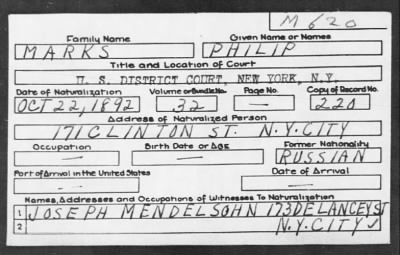 M620
Family Name Given Name or Names
MARKS PHILIP
Title and Location of Court
U. S. DISTRICT COURT, NEW YORK, N.Y.
Date of Naturalization Volume or Bundle No. Page No. Copy of Record No.
OCT 22, 1892 32 — 220
Address of Naturalized Person
171 CLINTON ST. N.Y. CITY
Occupation Birth Date or Age Former Nationality
— — RUSSIAN
Port of Arrival in the United States Date of Arrival
— —
Names, Addresses and Occupations of Witnesses To Naturalization
1 JOSEPH MENDELSOHN 173 DELANCEY ST
2 N.Y. CITY ✓